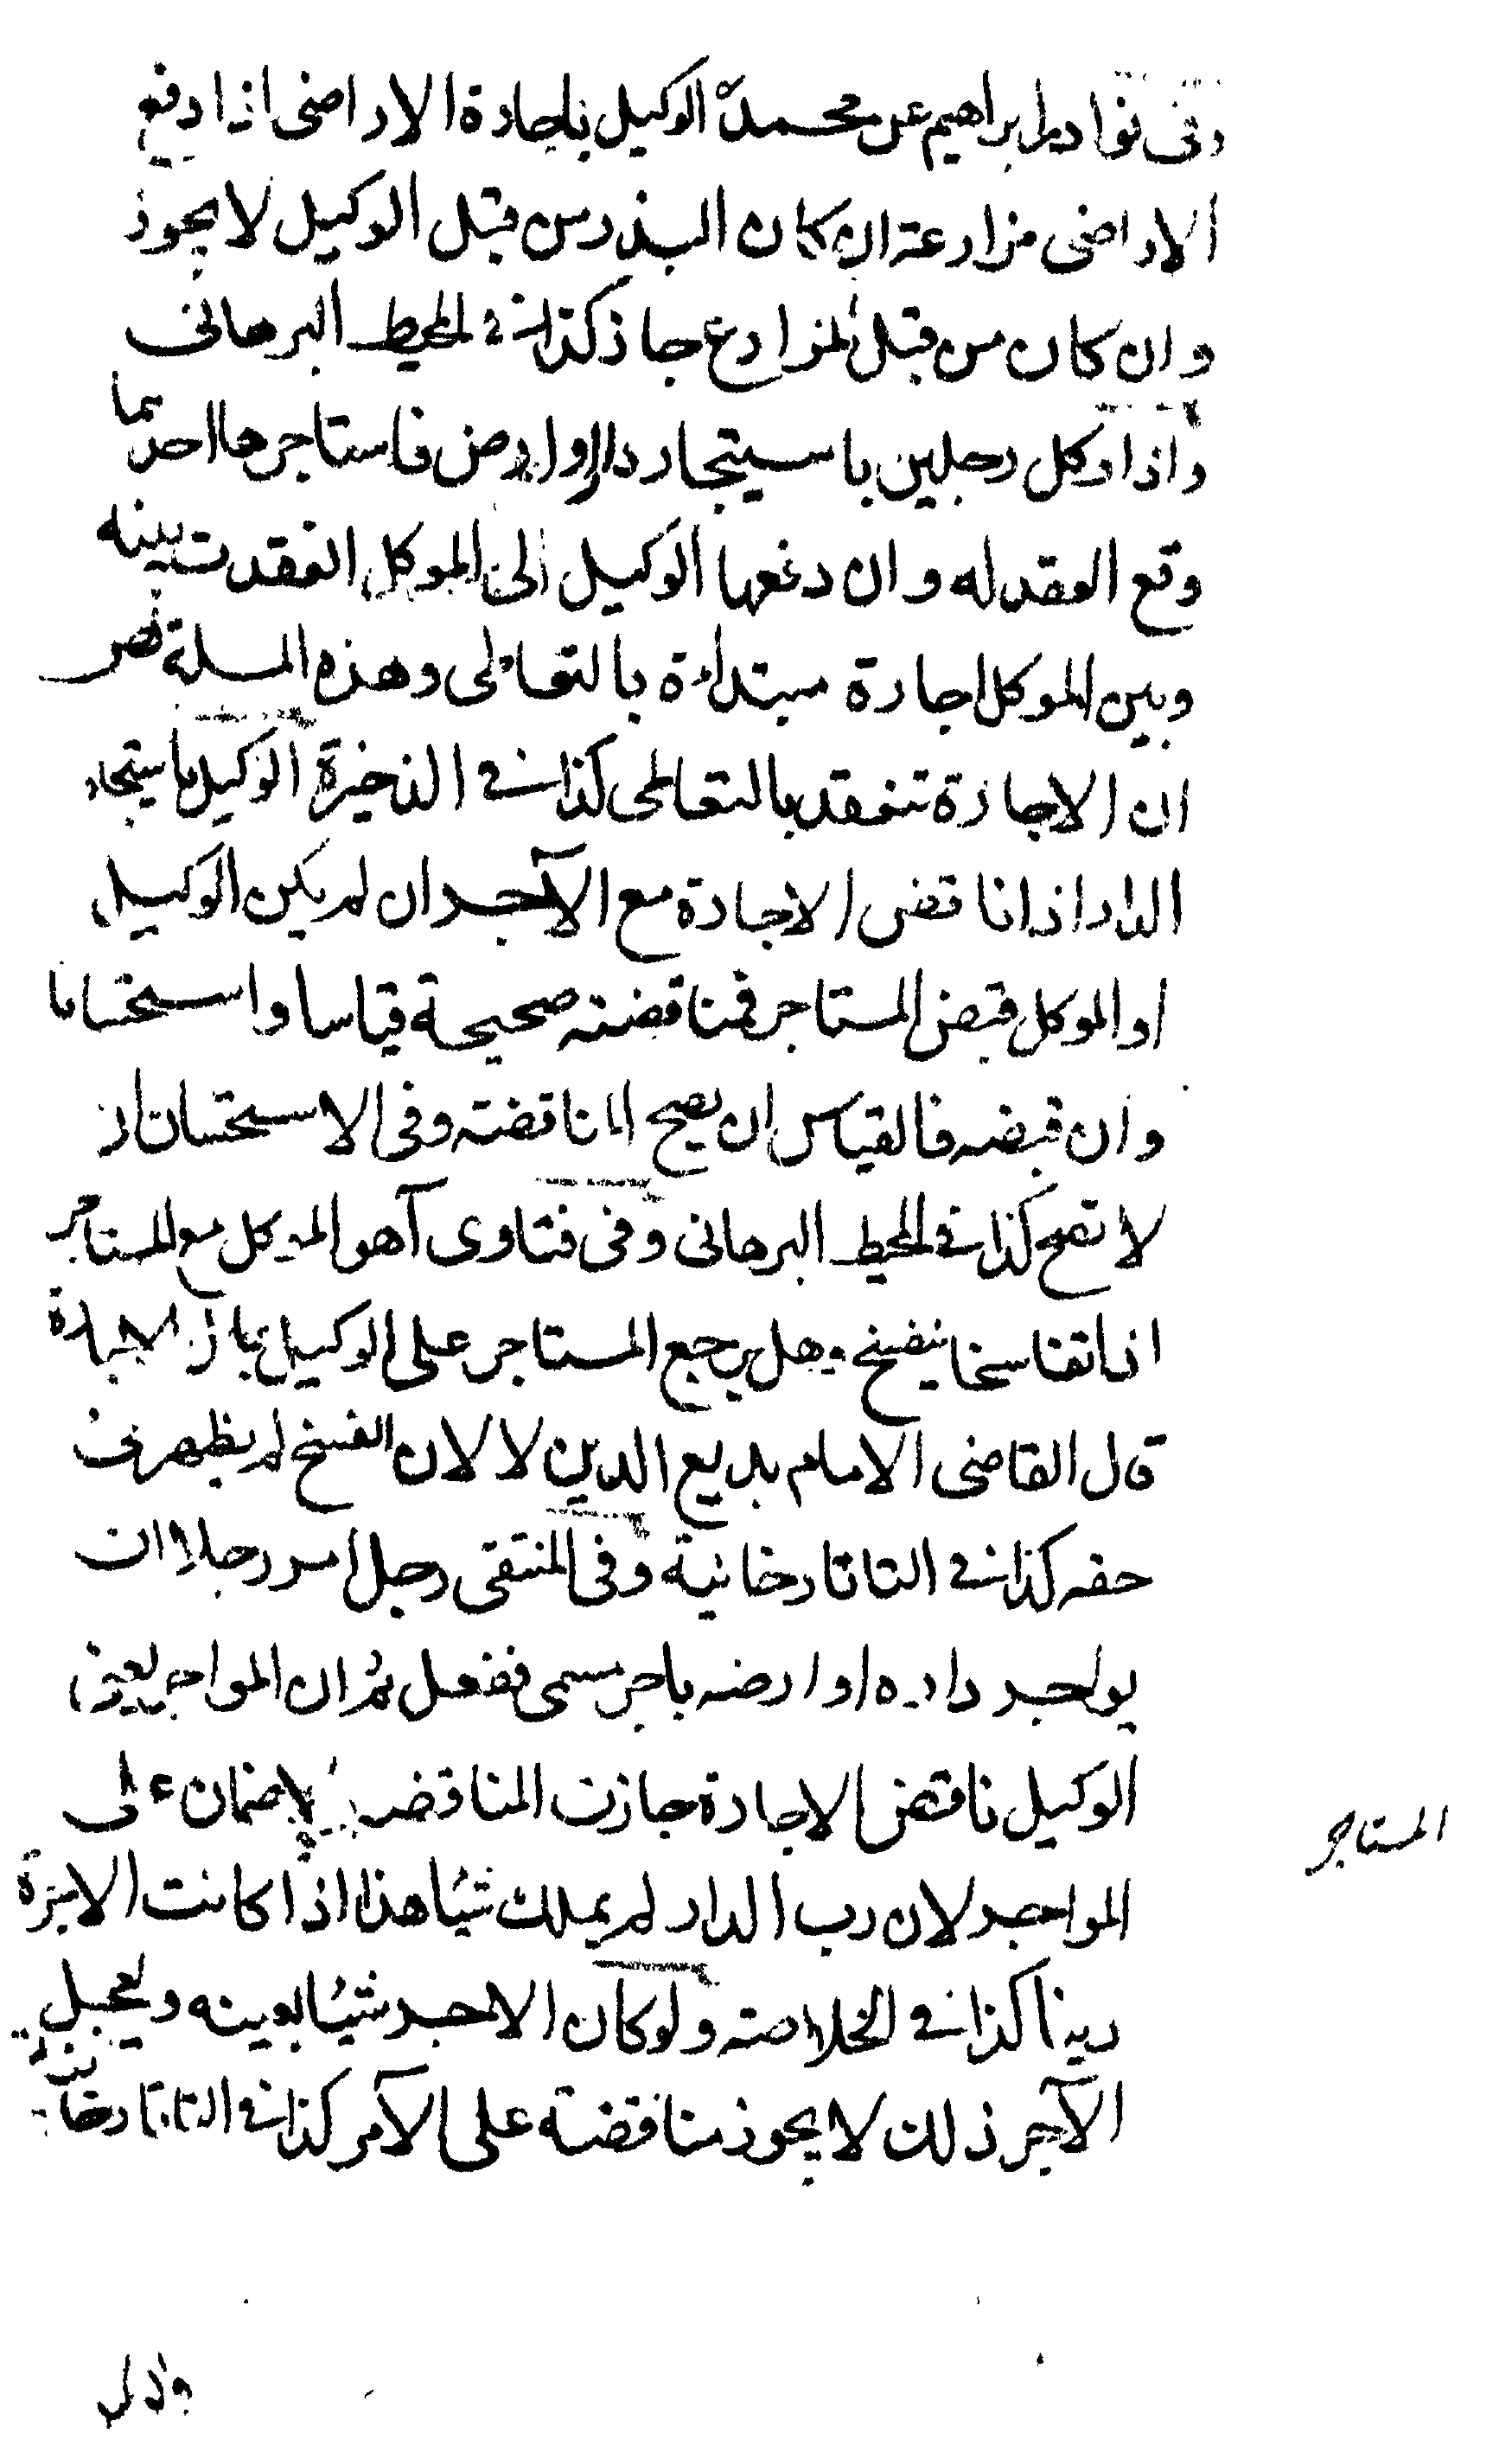 وفى نوادر ابراهيم عن محمد الوكيل باجارة الاراضى اذا دفع
الاراضى مزارعة ان كان البذر من قبل الوكيل لا يجوز
وان كان من قبل المزارع جاز كذا فى المحيط البرهانى
واذا وكل رجلين باستيجار دار او ارض فاستاجرها احدهما
وقع العقد له وان دفعها الوكيل الى الموكل انعقدت بينه
وبين الموكل اجارة مبتداءة بالتعاطى وهذه المسلة نص
ان الاجارة تنعقد بالتعاطى كذا فى الذخيرة الوكيل باستيجار
الدار اذا ناقض الاجارة مع الآجر ان لم يكن الوكيل
او الموكل قبض المستاجر فمناقضته صحيحة قياسا واستحسانا
وان قبضه فالقياس ان يصح المناقضته وفى الاستحسان ان
لا تصح كذا فى المحيط البرهانى وفى فتاوى آهو الموكل مع المستاجر
اذا تفاسخا ينفسخ وهل يرجع المستاجر على الوكيل بمال الاجارة
قال القاضى الامام بديع الدين لا لان الفسخ لم يظهر فى
حقه كذا فى التاتارخانية وفى المنتقى رجل امر رجلا ان
يواجر داره او ارضه باجر مسمى ففعل ثم ان المواجر يعنى
الوكيل ناقض الاجارة جازت المناقضة ولا ضمان على
المستاجر
المواجر لان رب الدار لم يملك شيئا هذا اذا كانت الاجرة
دينا كذا فى الخلاصة ولو كان الاجر شيئا بعينه وتعجيل
الآجر ذلك لا يجوز مناقضته على الآمر كذا فى التاتارخانية